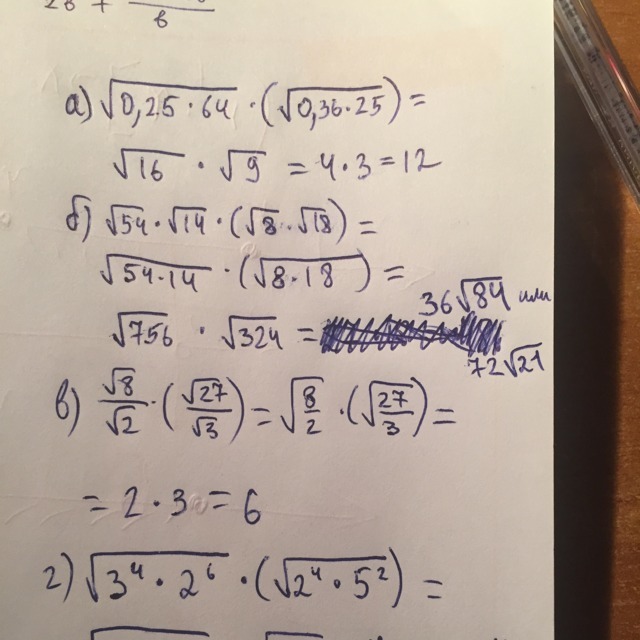 2в + —
в
а) √0,25·64 · (√0,36·25) =
√16 · √9 = 4·3=12
б) √54·√14·(√8·√18) =
√54·14 · (√8·18) =
√756 · √324 = 36√84 или
72√21
в) √8/√2 · (√27/√3) = √8/2 · (√27/3) =
= 2·3 = 6
г) √3⁴·2⁶ · (√2⁴·5²) =